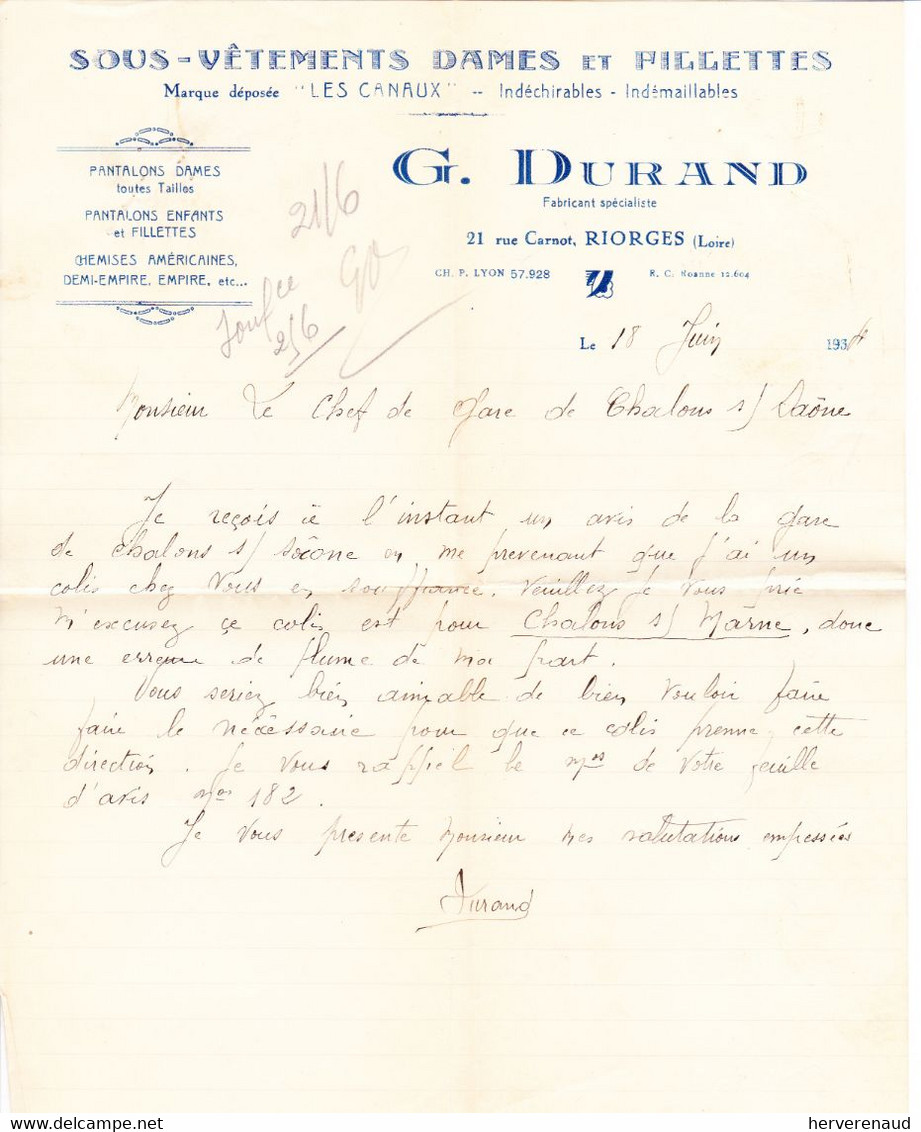 SOUS-VÊTEMENTS DAMES ET FILLETTES
Marque déposée "LES CANAUX" -- Indéchirables - Indémaillables
PANTALONS DAMES
toutes Tailles
PANTALONS ENFANTS
et FILLETTES
CHEMISES AMÉRICAINES,
DEMI-EMPIRE, EMPIRE, etc...
G. DURAND
Fabricant spécialiste
21 rue Carnot, RIORGES (Loire)
CH. P. LYON 57.928
R. C. Roanne 12.604
21/6
90
25/6
Le 18 Juin 1934
Monsieur Le Chef de Gare de Chalons s/ Saône
Je reçois à l'instant un avis de la gare
de Chalons s/ Saône en me prevenant que j'ai un
colis chez Vous en souffrance. Veuillez Je Vous prie
M'excusez çe colis est pour Chalons s/ Marne, donc
une erreur de plume de ma part.
Vous seriez bien aimable de bien Vouloir faire
faire le nécessaire pour que ce colis prenne cette
direction. Je vous rappiel le nos de Votre feuille
d'avis nos 182.
Je Vous presente Monsieur mes salutations empressées
Durand
delcampe.net
herverenaud